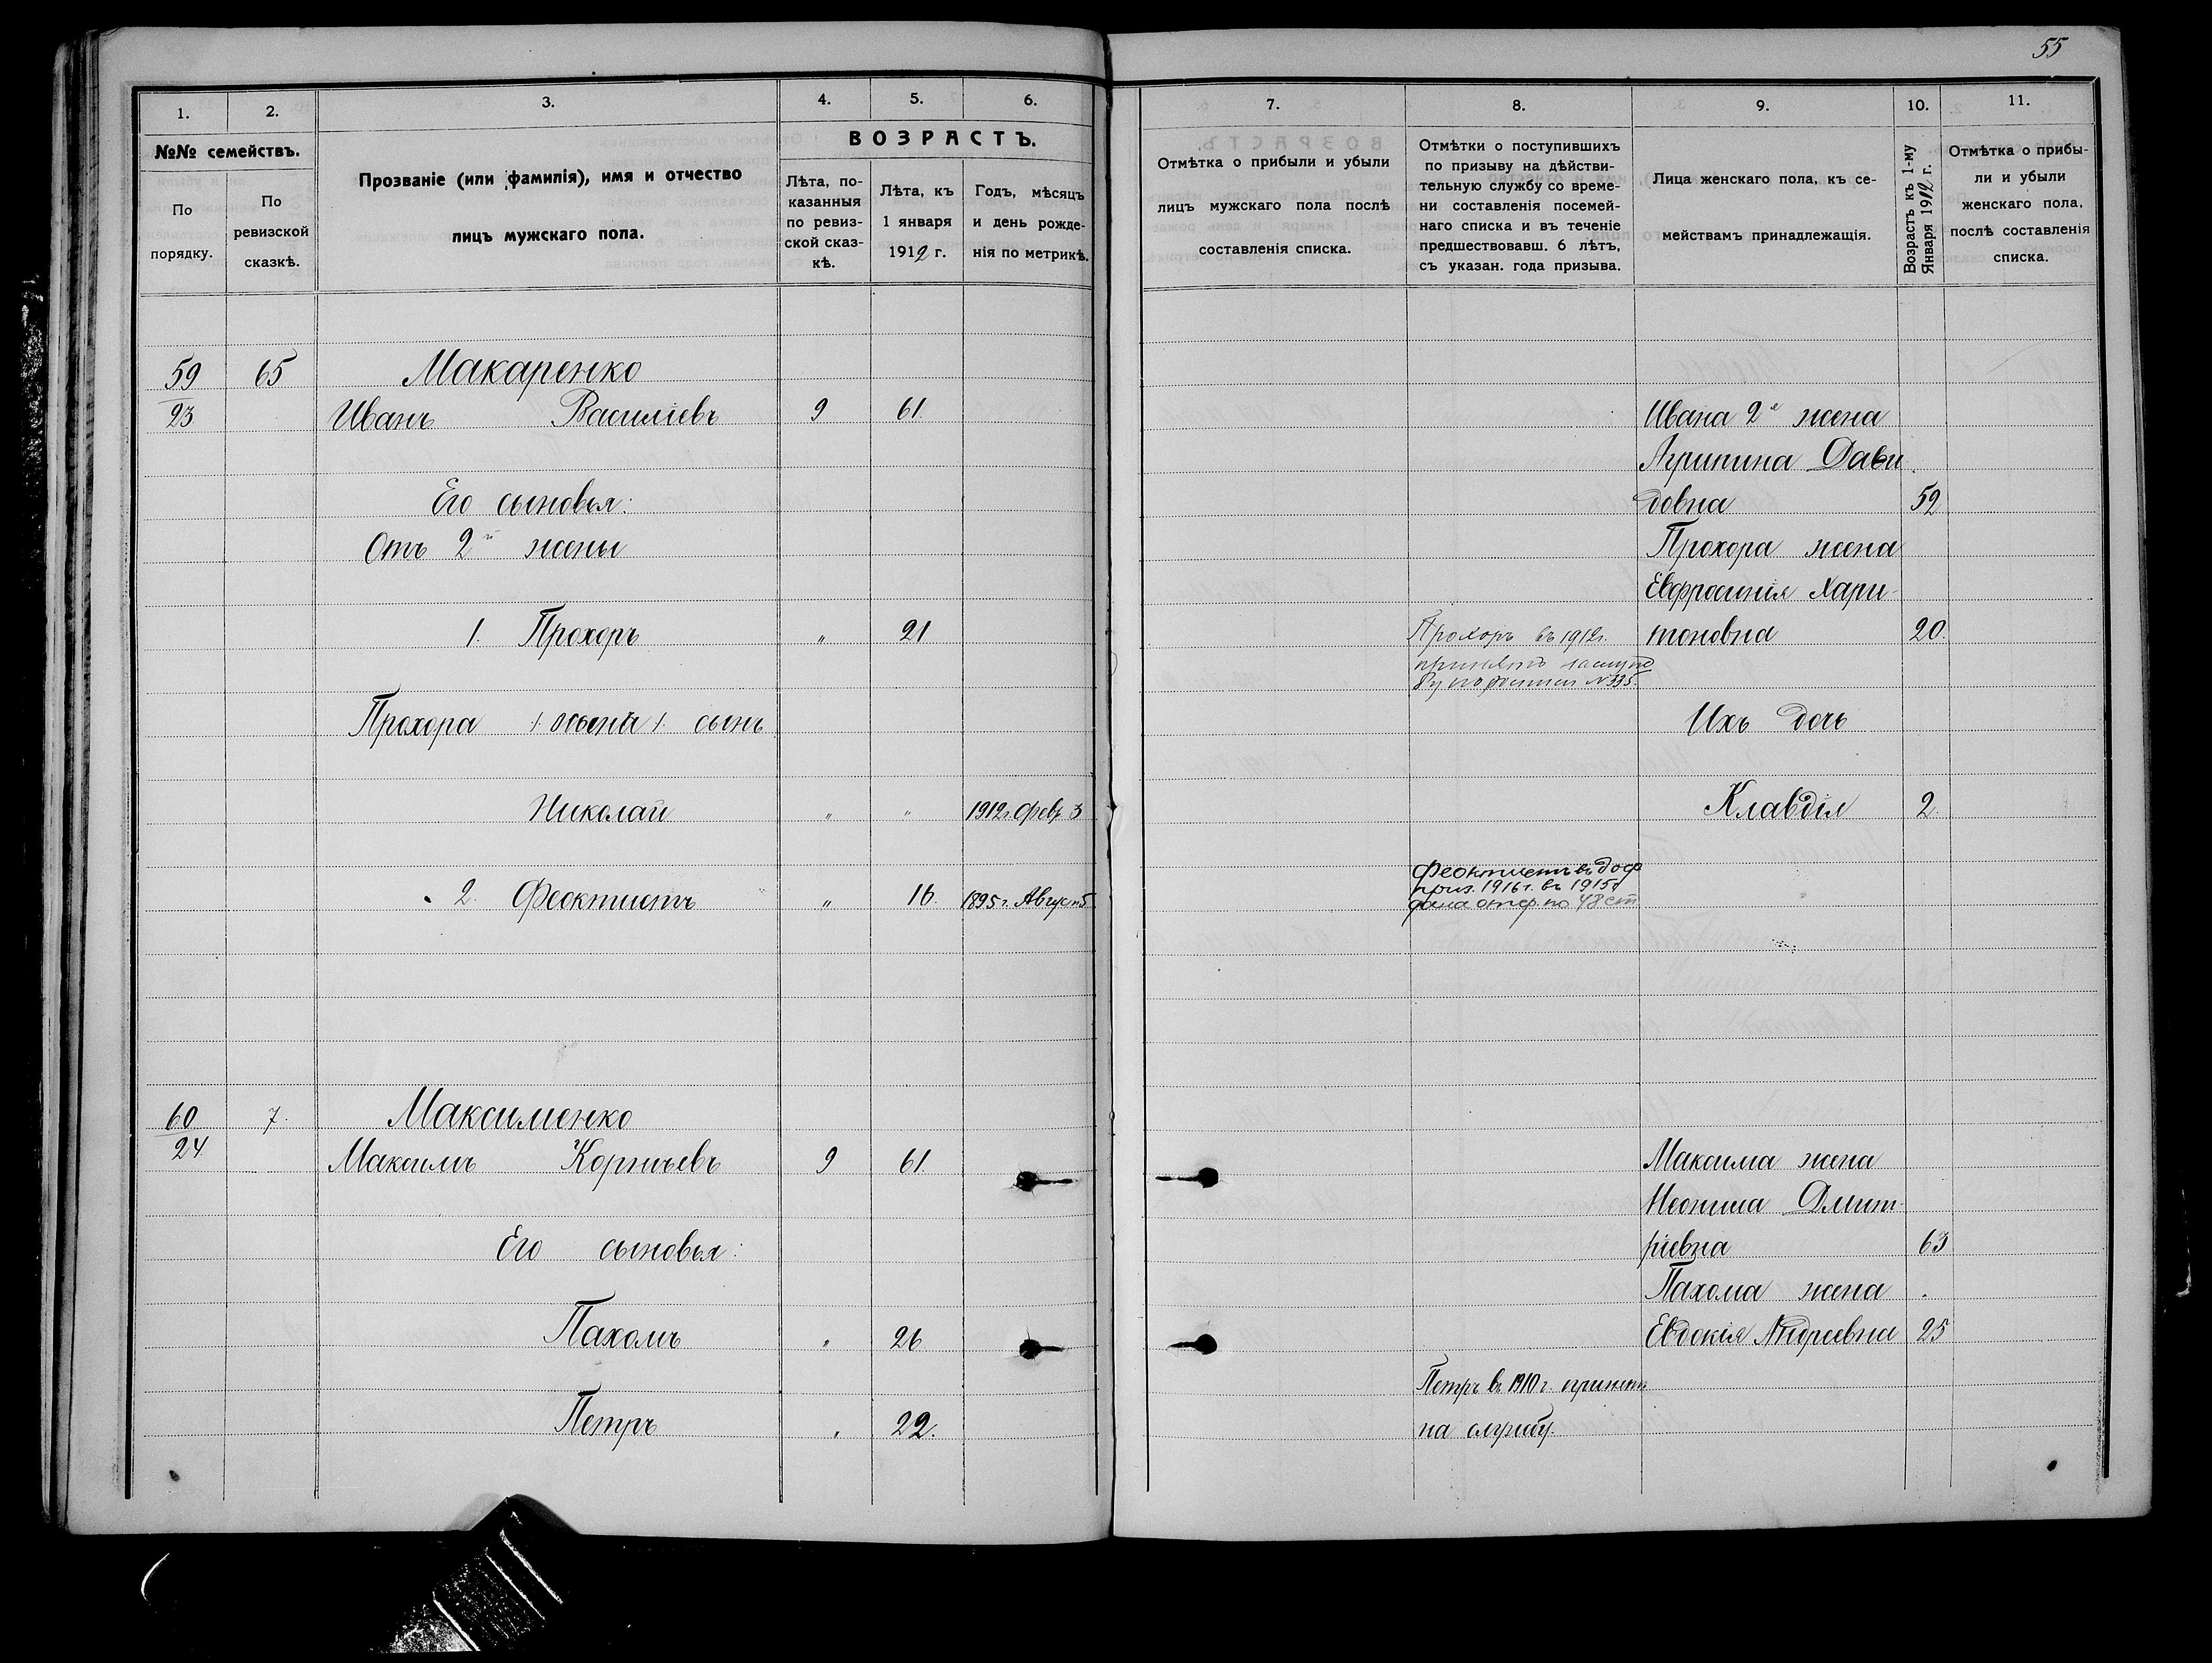 55
1. 2. 3. 4. 5. 6.
№№ семействъ.
По порядку.
По ревизской сказкѣ.
Прозваніе (или фамилія), имя и отчество
лицъ мужскаго пола.
ВОЗРАСТЪ.
Лѣта, по-
казанныя
по ревиз-
ской сказ-
кѣ.
Лѣта, къ
1 января
1912 г.
Годъ, мѣсяцъ
и день рожде-
нія по метрикѣ.
7. 8. 9. 10. 11.
Отмѣтка о прибыли и убыли
лицъ мужскаго пола послѣ
составленія списка.
Отмѣтки о поступившихъ
по призыву на дѣйстви-
тельную службу со време-
ни составленія посемей-
наго списка и въ теченіе
предшествовавш. 6 лѣтъ,
съ указан. года призыва.
Лица женскаго пола, къ се-
мействамъ принадлежащія.
Возрастъ къ 1-му
Января 1912 г.
Отмѣтка о прибы-
ли и убыли
женскаго пола,
послѣ составленія
списка.
59 65 Макаренко
23 Иванъ Василіевъ 9 61
Его сыновья:
Отъ 2й жены
1. Прохоръ " 21
Прохора сынъ
Николай " " 1912 г. Февр 3
2. Феоктистъ " 16 1895 г. Август 5
Прохоръ въ 1912 г.
принятъ
№ 395.
Феоктистъ въ
приз. 1916 г. въ 1915 г
дана отср. по 48 ст
Ивана 2я жена
Агрипина Дави
довна 52
Прохора жена
Евфросинія Хари-
тоновна 20.
Ихъ дочь
Клавдія 2.
60 7. Максименко
24 Максимъ Корніевъ 9 61
Его сыновья:
Пахомъ " 26
Петръ " 22.
Петръ въ 1910 г. принятъ
на службу.
Максима жена
Неонила Дмит-
ріевна 63
Пахома жена
Евдокія Андреевна 25